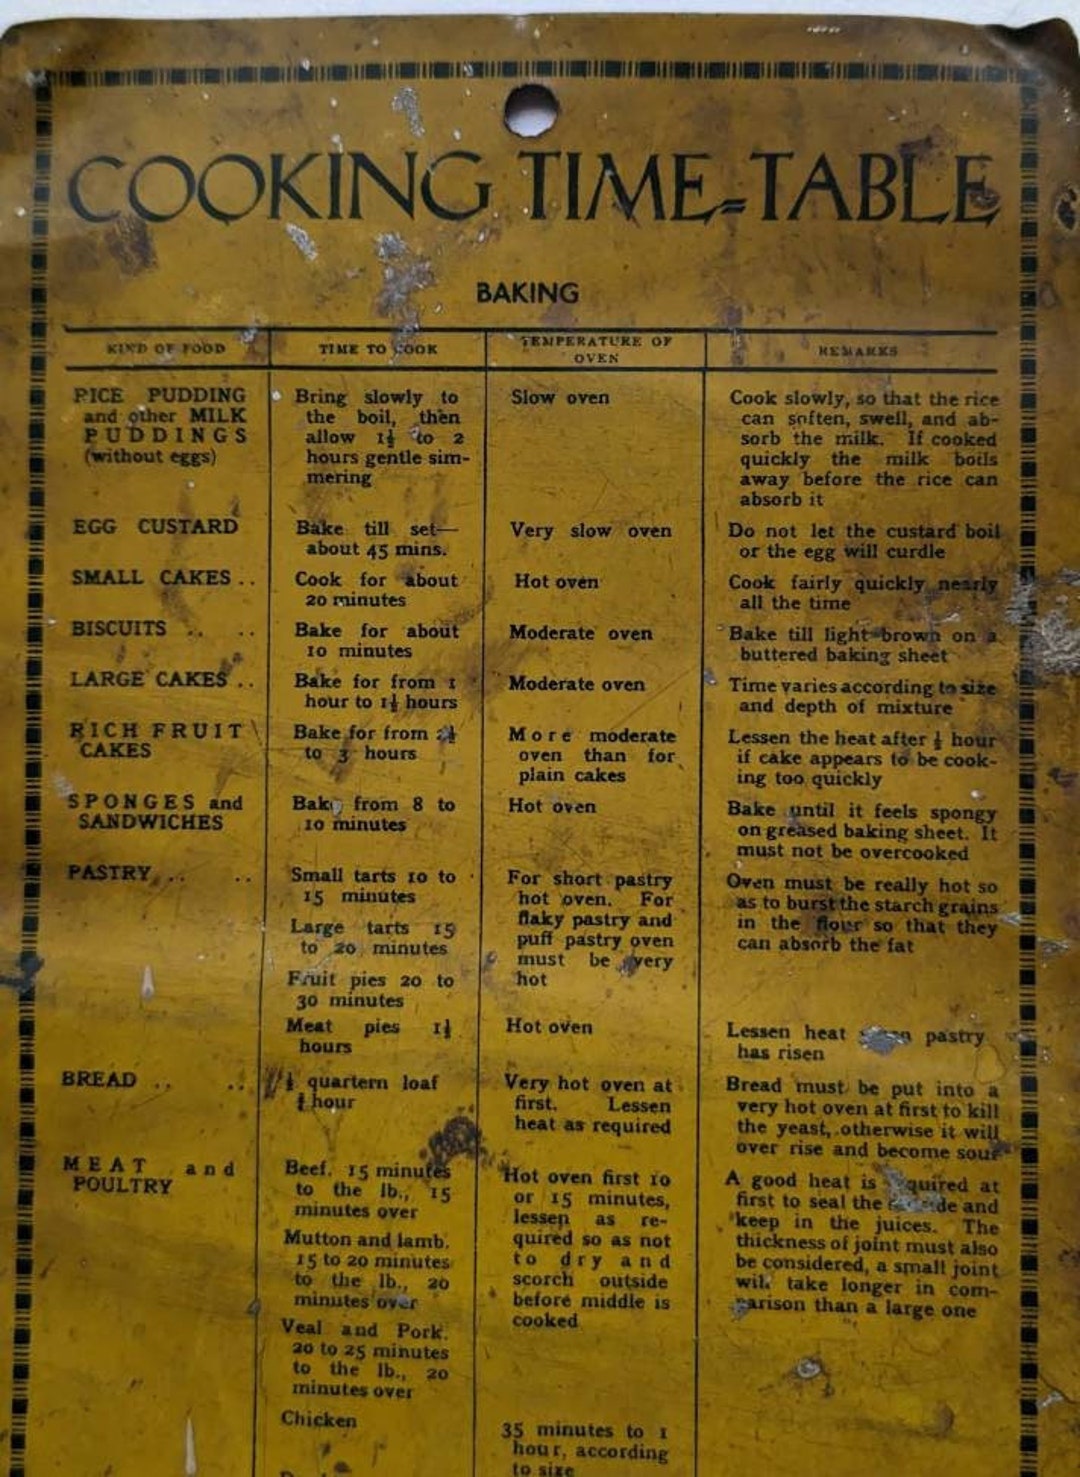 COOKING TIME=TABLE
BAKING
KIND OF FOOD
TIME TO COOK
TEMPERATURE OF
OVEN
REMARKS
RICE PUDDING
and other MILK
PUDDINGS
(without eggs)
Bring slowly to
the boil, then
allow 1½ to 2
hours gentle sim-
mering
Slow oven
Cook slowly, so that the rice
can soften, swell, and ab-
sorb the milk. If cooked
quickly the milk boils
away before the rice can
absorb it
EGG CUSTARD
Bake till set—
about 45 mins.
Very slow oven
Do not let the custard boil
or the egg will curdle
SMALL CAKES ..
Cook for about
20 minutes
Hot oven
Cook fairly quickly nearly
all the time
BISCUITS .. ..
Bake for about
10 minutes
Moderate oven
Bake till light brown on a
buttered baking sheet
LARGE CAKES ..
Bake for from 1
hour to 1½ hours
Moderate oven
Time varies according to size
and depth of mixture
RICH FRUIT
CAKES
Bake for from
to 3 hours
More moderate
oven than for
plain cakes
Lessen the heat after ½ hour
if cake appears to be cook-
ing too quickly
SPONGES and
SANDWICHES
Bake from 8 to
10 minutes
Hot oven
Bake until it feels spongy
on greased baking sheet. It
must not be overcooked
PASTRY .. ..
Small tarts 10 to
15 minutes
Large tarts 15
to 20 minutes
Fruit pies 20 to
30 minutes
For short pastry
hot oven. For
flaky pastry and
puff pastry oven
must be very
hot
Oven must be really hot so
as to burst the starch grains
in the flour so that they
can absorb the fat
Meat pies 1½
hours
Hot oven
Lessen heat pastry
has risen
BREAD .. ..
quartern loaf
hour
Very hot oven at
first. Lessen
heat as required
Bread must be put into a
very hot oven at first to kill
the yeast, otherwise it will
over rise and become sour
MEAT and
POULTRY
Beef. 15 minutes
to the lb., 15
minutes over
Mutton and lamb.
15 to 20 minutes
to the lb., 20
minutes over
Veal and Pork.
20 to 25 minutes
to the lb., 20
minutes over
Hot oven first 10
or 15 minutes,
lessen as re-
quired so as not
to dry and
scorch outside
before middle is
cooked
A good heat is required at
first to seal the and
keep in the juices. The
thickness of joint must also
be considered, a small joint
will take longer in com-
parison than a large one
Chicken
35 minutes to 1
hour, according
to size